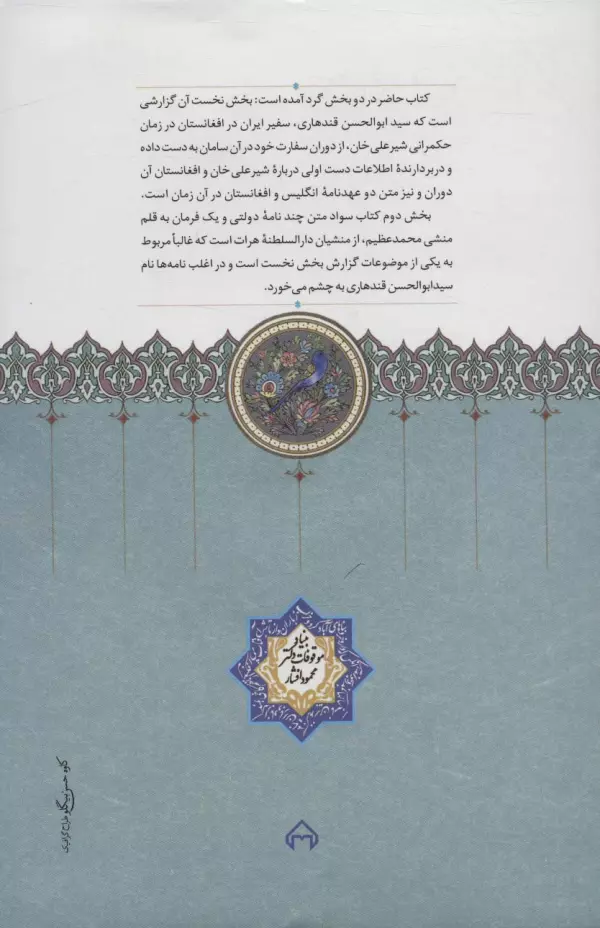 کتاب حاضر در دو بخش گرد آمده است: بخش نخست آن گزارشی
است که سید ابوالحسن قندهاری، سفیر ایران در افغانستان در زمان
حکمرانی شیرعلی خان، از دوران سفارت خود در آن سامان به دست داده
و دربردارندۀ اطلاعات دست اولی دربارۀ شیرعلی خان و افغانستان آن
دوران و نیز متن دو عهدنامۀ انگلیس و افغانستان در آن زمان است.
بخش دوم کتاب سواد متن چند نامۀ دولتی و یک فرمان به قلم
منشی محمدعظیم، از منشیان دارالسلطنۀ هرات است که غالباً مربوط
به یکی از موضوعات گزارش بخش نخست است و در اغلب نامه‌ها نام
سیدابوالحسن قندهاری به چشم می‌خورد.
بنیاد
موقوفات دکتر
محمود افشار
کاوه حسن بیگلو طراح گرافیک